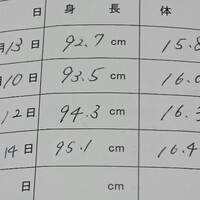 日 身長 体
月13日 92.7 cm 15.8
月10日 93.5 cm 16.0
12日 94.3 cm 16.3
14日 95.1 cm 16.4
日 cm